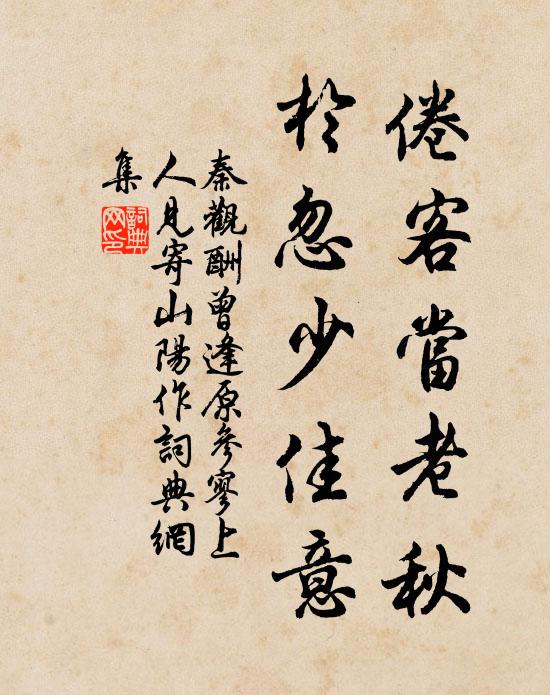 倦客當老秋
於忽少佳意
秦觀酬曾逢原參寥上
人見寄山陽作詞典網
集
詞典網印